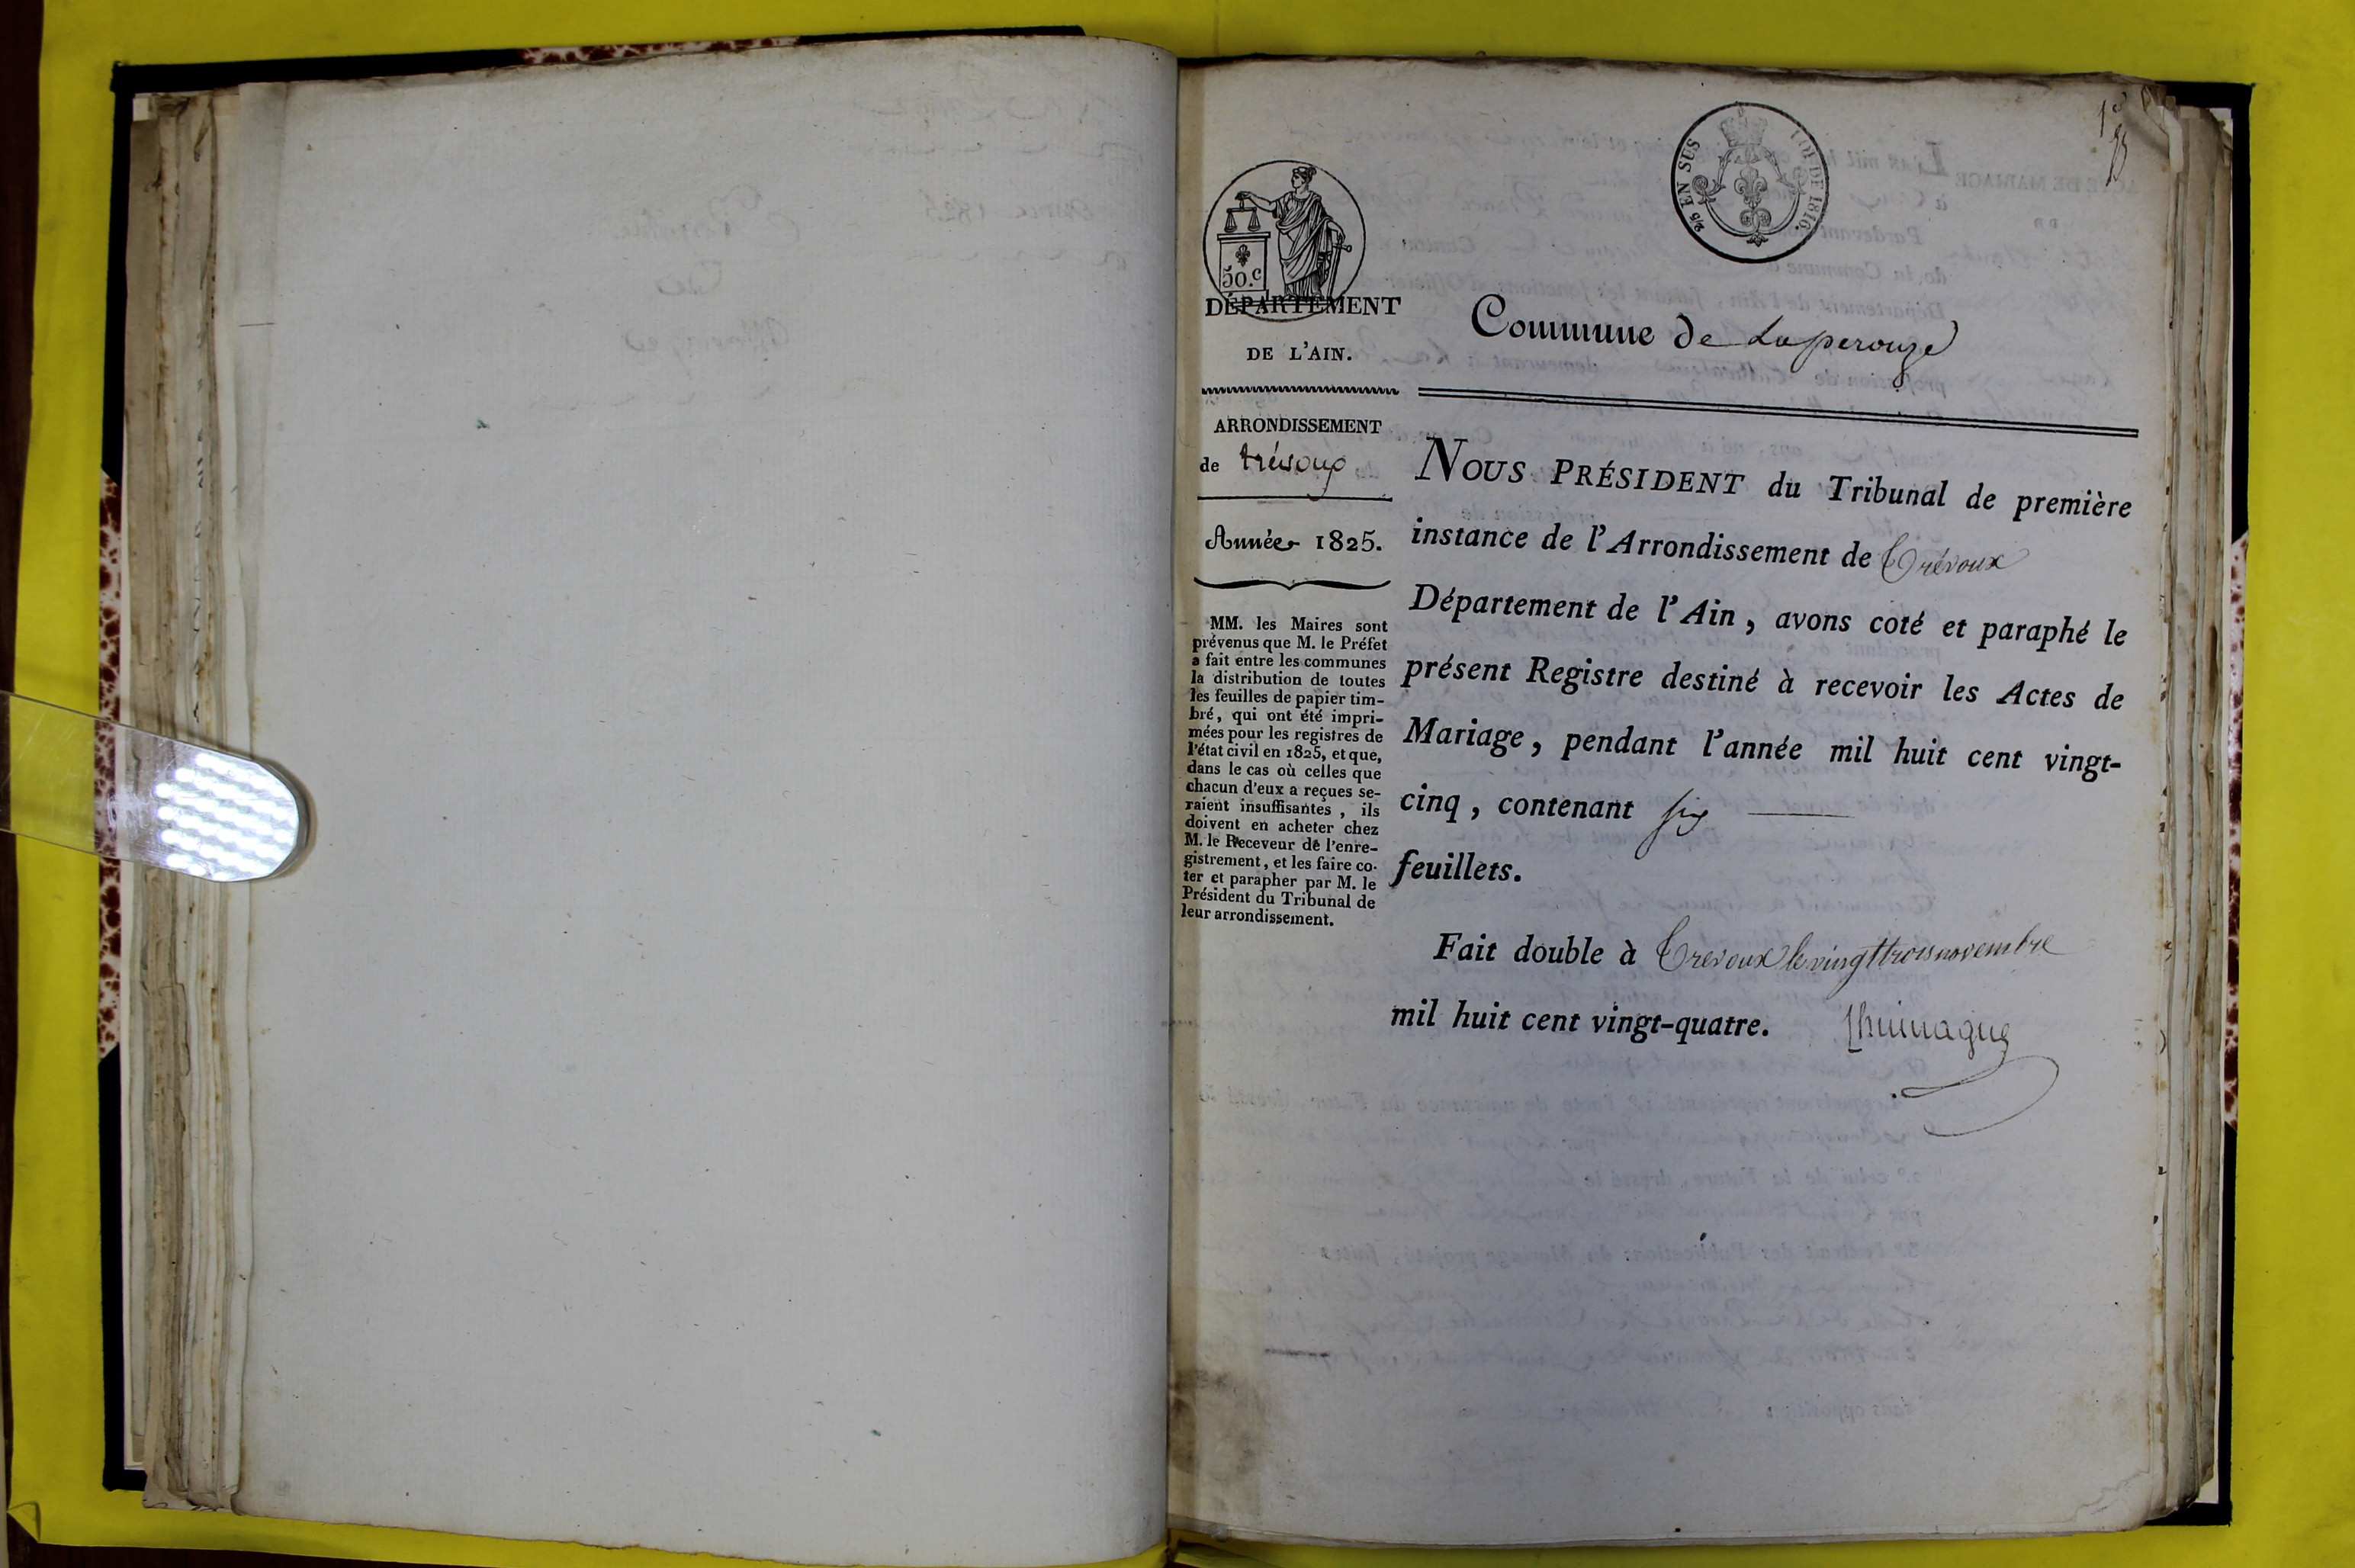 2/5 EN SUS
LOI DE 1816.
50.c
DÉPARTEMENT
DE L'AIN.
Commune de Laperouze
ARRONDISSEMENT
de trévoux
Année 1825.
MM. les Maires sont
prévenus que M. le Préfet
a fait entre les communes
la distribution de toutes
les feuilles de papier tim-
bré, qui ont été impri-
mées pour les registres de
l'état civil en 1825, et que,
dans le cas où celles que
chacun d'eux a reçues se-
raient insuffisantes, ils
doivent en acheter chez
M. le Receveur de l'enre-
gistrement, et les faire co-
ter et parapher par M. le
Président du Tribunal de
leur arrondissement.
NOUS PRÉSIDENT du Tribunal de première
instance de l'Arrondissement de Trévoux
Département de l'Ain, avons coté et paraphé le
présent Registre destiné à recevoir les Actes de
Mariage, pendant l'année mil huit cent vingt-
cinq, contenant six
feuillets.
Fait double à Trevoux le vingt trois novembre
mil huit cent vingt-quatre.